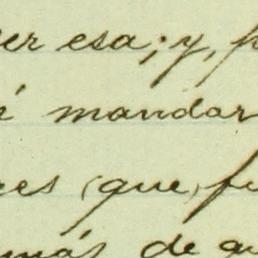 er esa; y,
mandar
es (que, fu
más de qu